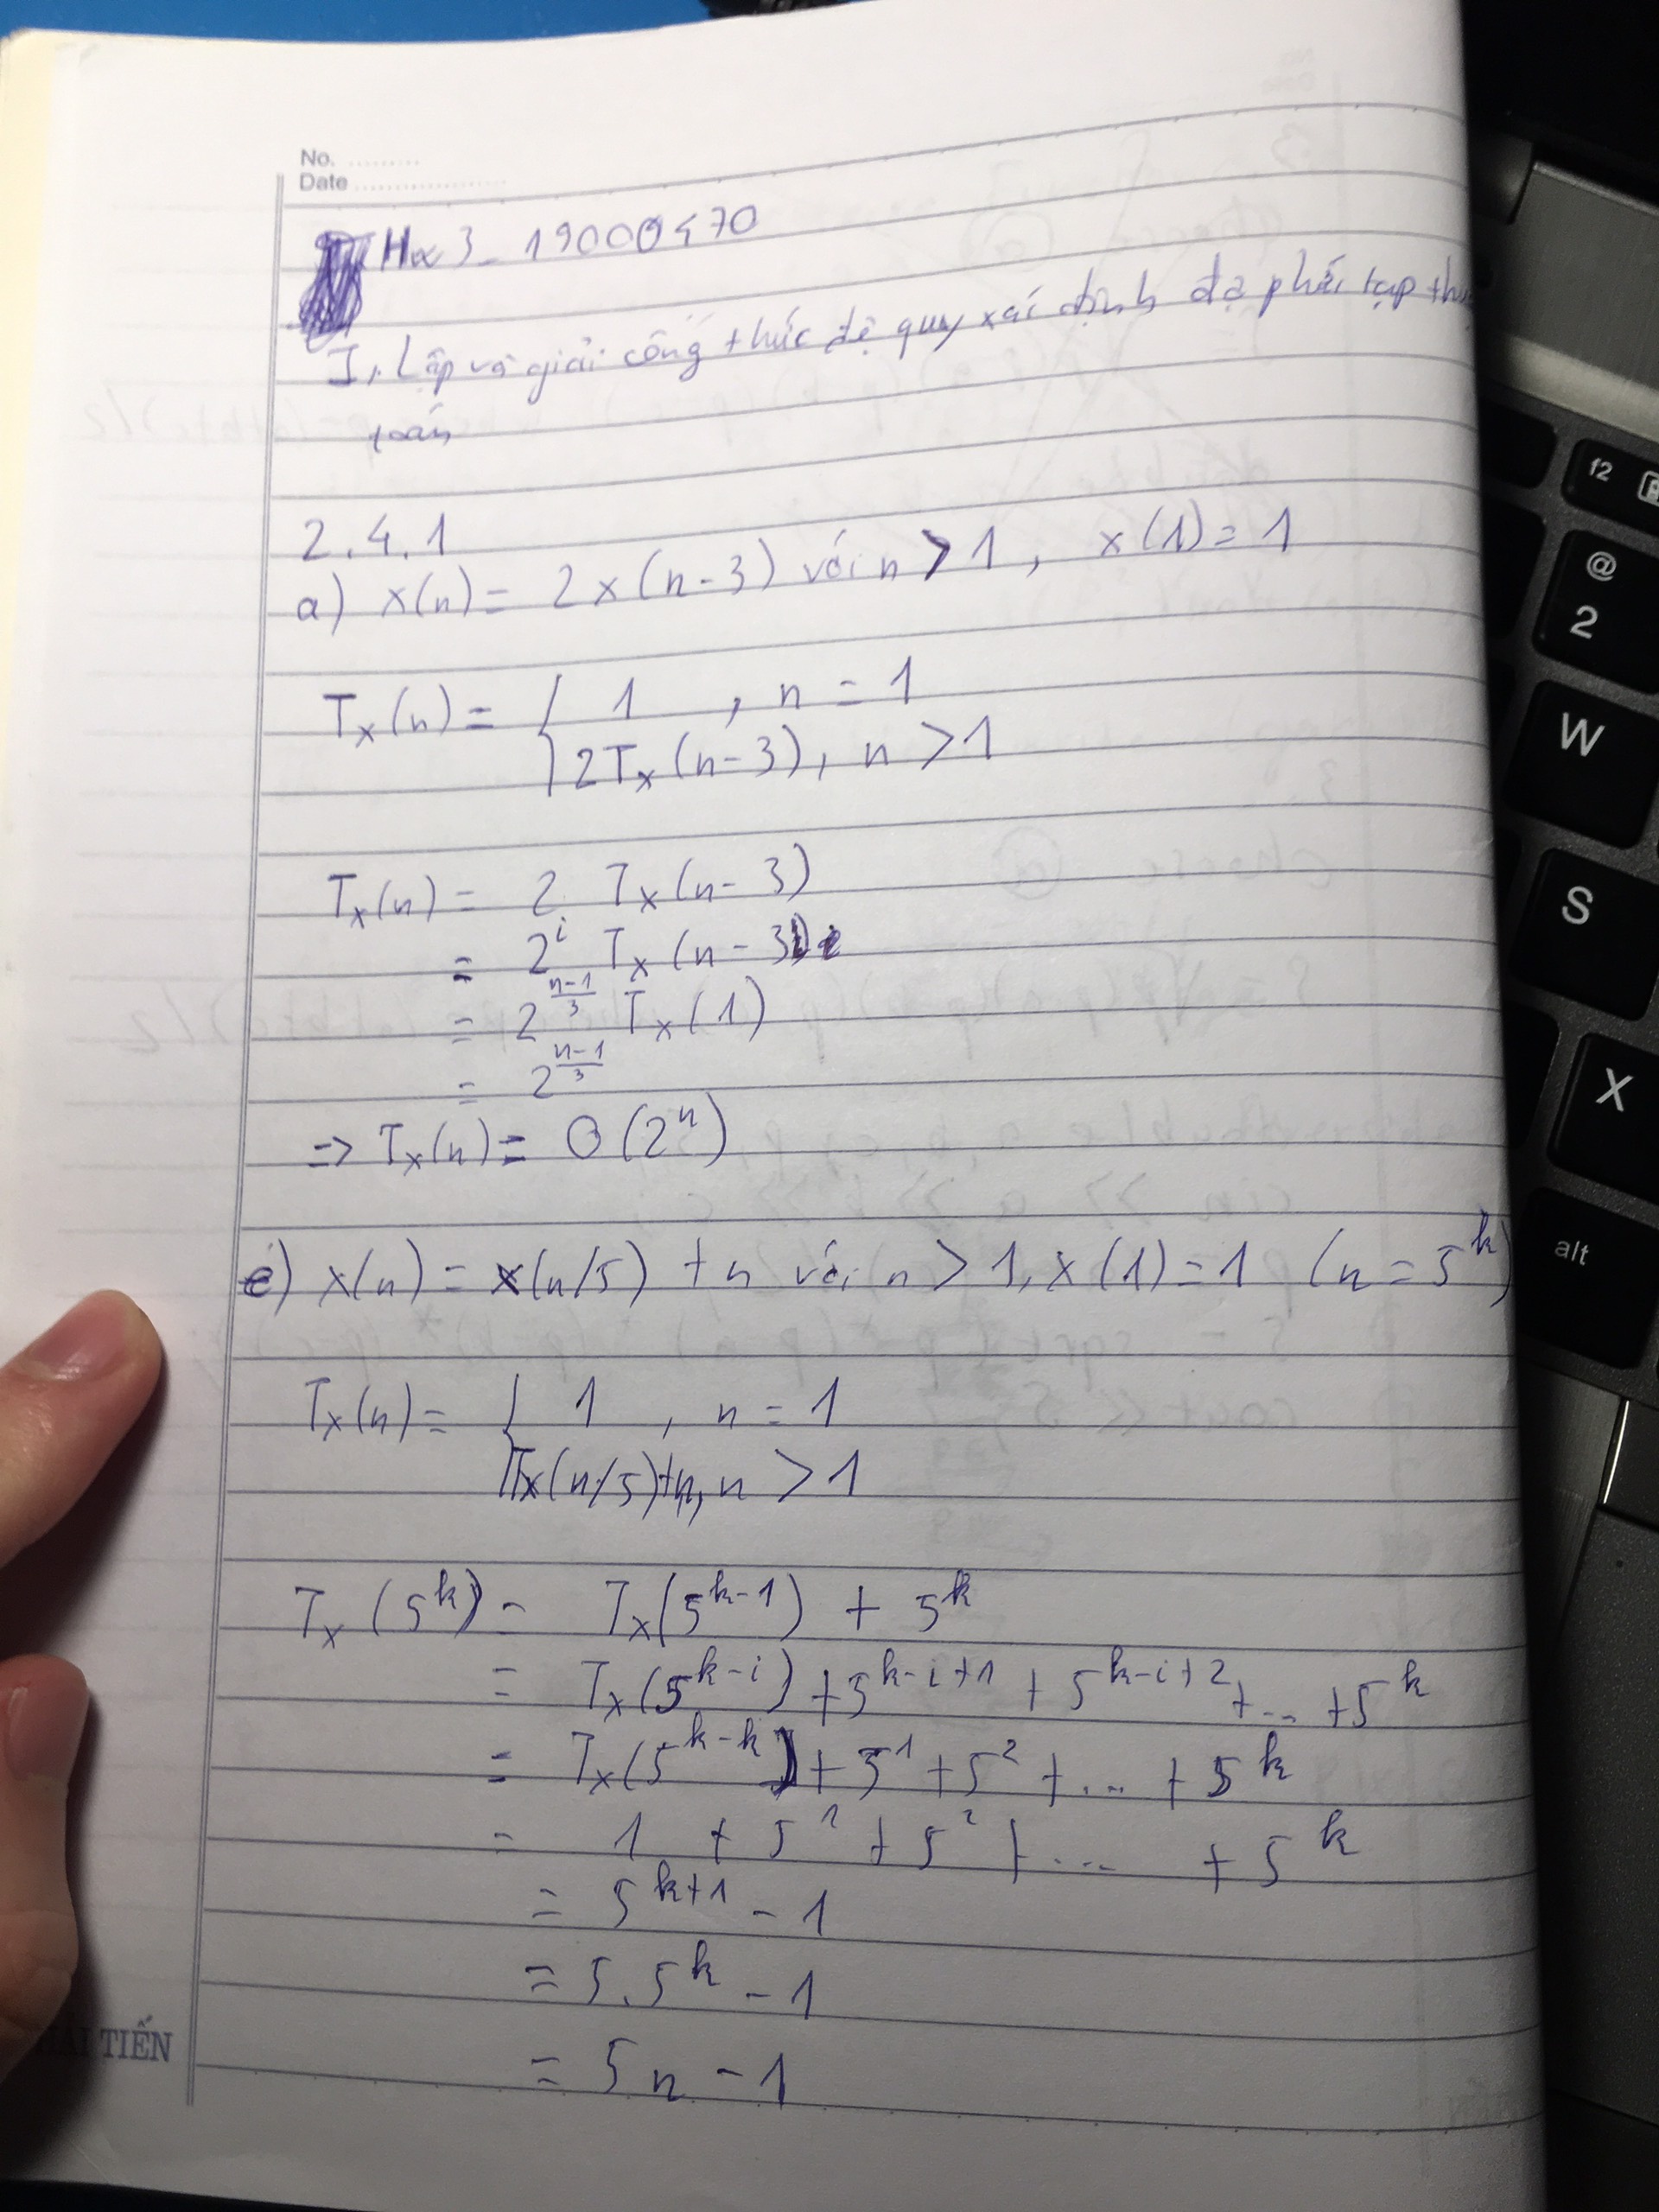 No. .........
Date ....................
Hw 3_ 19000470
I, Lập và giải công thức đệ quy xác định độ phức tạp
toán
2.4.1
a) x(n) = 2x(n-3) với n > 1, x(1) = 1
Tx(n) = { 1 , n = 1
2Tx(n-3), n > 1
Tx(n) = 2 Tx(n-3)
= 2^i Tx(n-3i)
= 2^((n-1)/3) Tx(1)
= 2^((n-1)/3)
=> Tx(n) = Θ(2^n)
e) x(n) = x(n/5) + n với n > 1, x(1) = 1 (n = 5^k)
Tx(n) = { 1 , n = 1
Tx(n/5)+n, n > 1
Tx(5^k) = Tx(5^(k-1)) + 5^k
= Tx(5^(k-i)) + 5^(k-i+1) + 5^(k-i+2) + ... + 5^k
= Tx(5^(k-k)) + 5^1 + 5^2 + ... + 5^k
= 1 + 5^1 + 5^2 + ... + 5^k
= 5^(k+1) - 1
= 5.5^k - 1
= 5n - 1
TIẾN
f2
@
2
W
S
X
alt